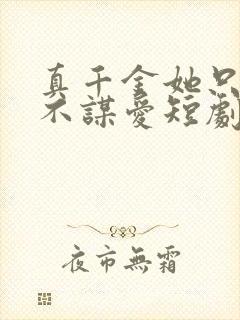 真千金她只
不謀愛短劇
夜市無霜